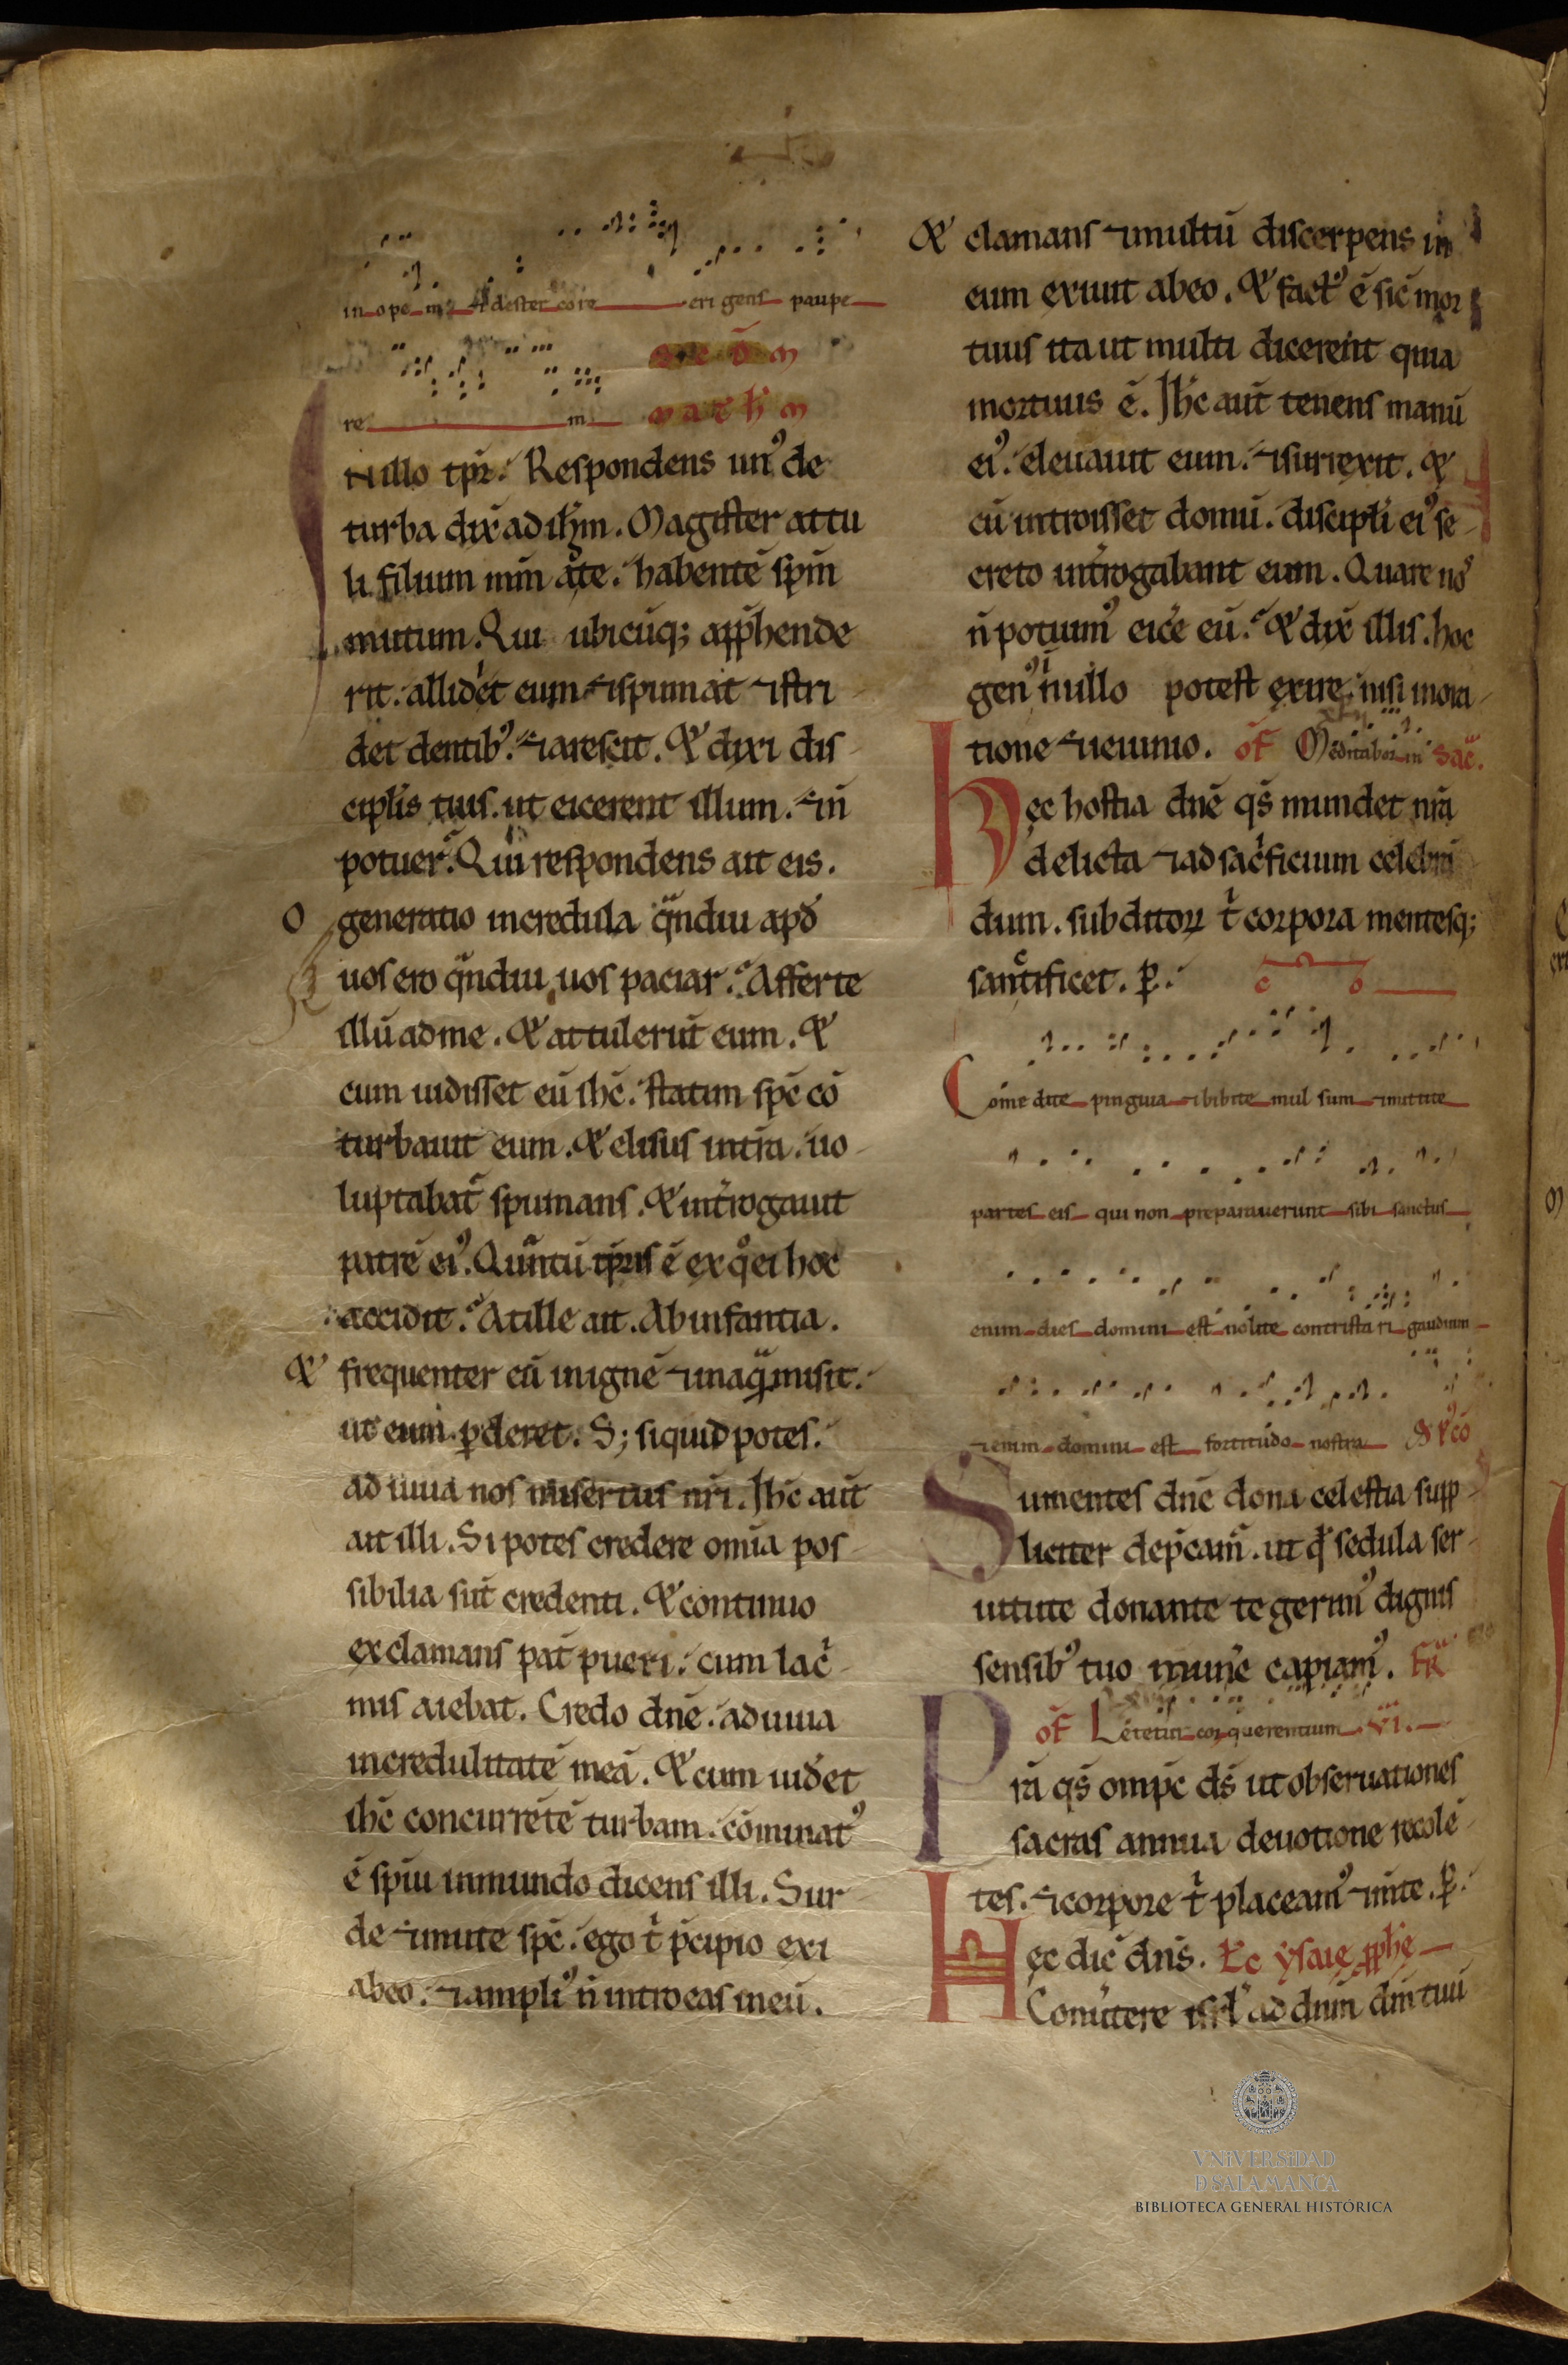 in ope m & de ster co re eri gens paupe
re m
Nillo tp̄r. Respondens un᾽ de
turba dix̄ ad ih̄m. Magister attu
li filium mm̄ ate. habentē sp̄m
mutum. Qui ubicūq; app̄hende
rit. allidet eum & spumat & stri
det dentib᾽. & arescit. Et dixi dis
cipl̄is tuis. ut eicerent illum. & n̄
potuer̄. Qui respondens ait eis.
O generatio incredula qndiu apd̄
uos ero qndiu uos paciar. Afferte
illū ad me. Et attulerūt eum. Et
cum uidisset eū ih̄c. statim sp̄c cō
turbauit eum. Et elisus int̄ra. uo
luptabat̄ spumans. Et int̄rogauit
patrē ei᾽. Quantū tp̄ris ē ex qo ei hoc
accidit. At ille ait. Ab infantia.
Et frequenter eū in ignē & in aquam misit.
ut eum p̱deret. S; siquid potes.
adiuua nos misertus nr̄i. Ih̄c aut̄
ait illi. Si potes credere om̄ia pos
sibilia sūt credenti. Et continuo
exclamans pat̄ pueri. cum lac̄
mis aiebat. Credo dn̄e. adiuua
incredulitatē meā. Et cum uid̄et
ih̄c concurrētē turbam. cōminat᾽
ē sp̄iu inmundo dicens illi. Sur
de & mute sp̄c. ego t̄ p̄cipio exi
abeo. & ampli᾽ n̄ introeas ineū.
Et clamans & multū discerpens in
eum exiuit abeo. Et fact᾽ ē sic̄ mor
tuus ita ut multi dicerent quia
mortuus ē. Ih̄c aut̄ tenens manū
ei᾽. eleuauit eum. & surrexit. Et
cū introisset domū. discipl̄i ei᾽ se
creto int̄rogabant eum. Quare no᾽
n̄ potuim᾽ eic̄e eū. Et dix̄ illis. hoc
gen᾽ in nullo potest exire. nisi in ora
tione & ieiunio. of̄ Meditabor in sac̄.
Hec hostia dn̄e qs̄ mundet nr̄a
delicta & ad sac̄ficium celebrā
dum. subditoꝝ t̄ corpora mentesq;
sanctificet. p̱.
co
Comedite pinguia & bibite mulsum & mittite
partes eis qui non preparauerunt sibi sanctus
enim dies domini est nolite contristari gaudium
& enim domini est fortitudo nostra
Sumentes dn̄e dona celestia supp
liciter dep̄cam᾽. ut q̄ sedula ser
uitute donante te gerim᾽ dignis
sensib᾽ tuo mun̄e capiam᾽. fr̄
of̄ Letetur cor querentium vi.
Pr̄a qs̄ omp̄c ds̄ ut obseruationes
sacras annua deuotione recolē
tes. & corpore t̄ placeam᾽ & m̄te. p̱.
Hec dic̄ dn̄s. Lc̄ ysaie pphe
Conu̅tere isrl̄ ad dn̄m dm̄ tuū
VNiVERSiDAD
Ð SALAMANCA
BIBLIOTECA GENERAL HISTÓRICA